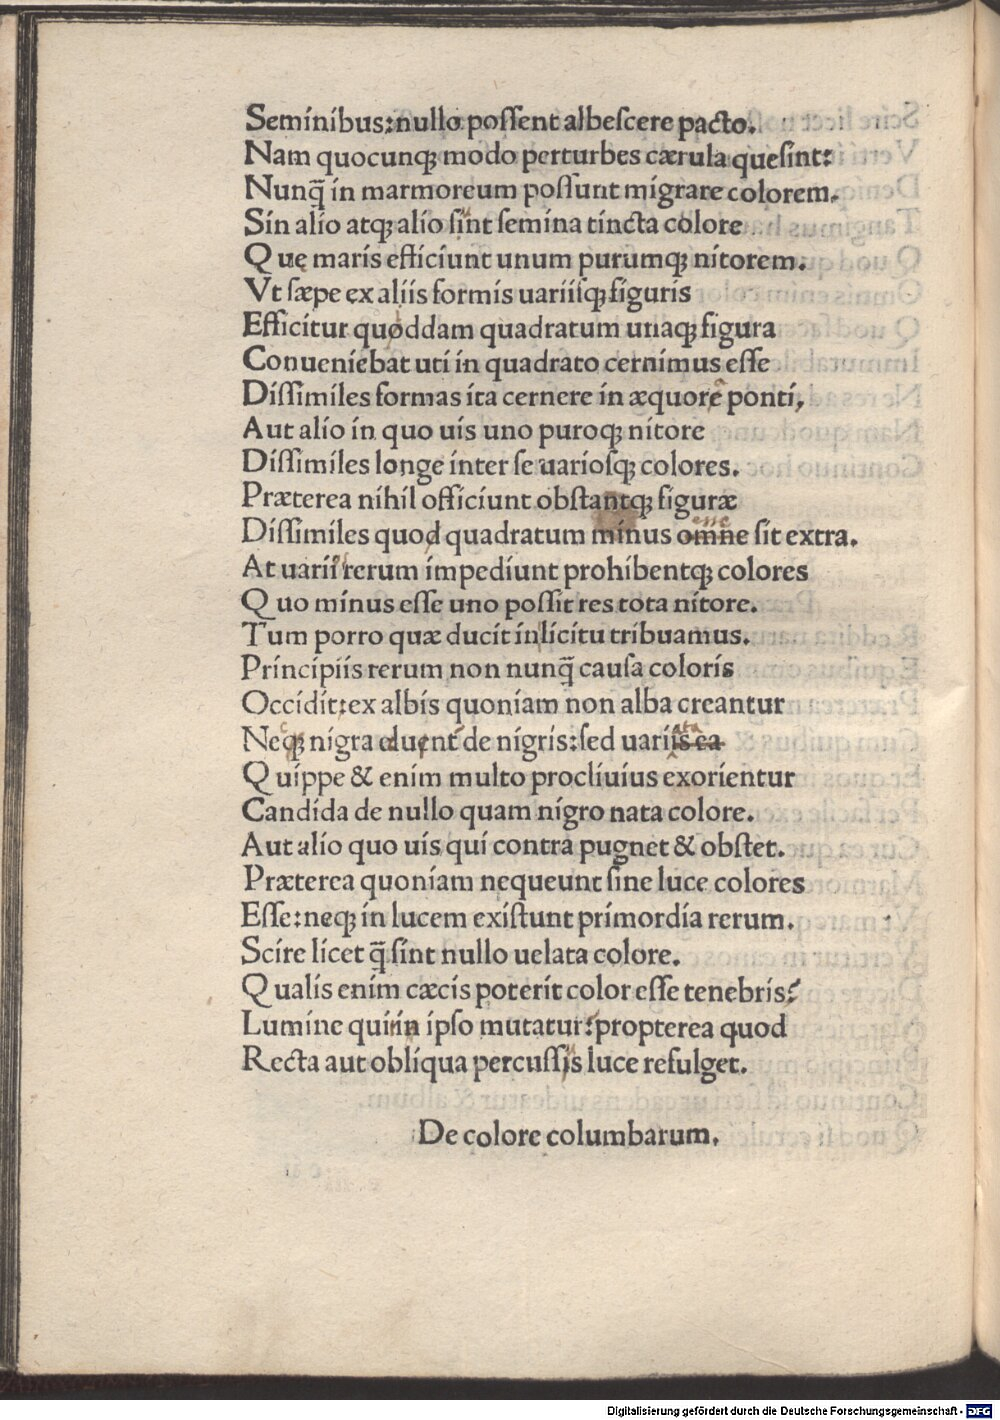 Seminibus: nullo possent albescere pacto.
Nam quocunqꝫ modo perturbes cærula quesint:
Nunq̃ in marmoreum possunt migrare colorem.
Sin alio atqꝫ alio sint semina tincta colore
Quę maris efficiunt unum purumqꝫ nitorem.
Vt sæpe ex aliis formis uariisqꝫ figuris
Efficitur quoddam quadratum unaqꝫ figura
Conueniebat uti in quadrato cernimus esse
Dissimiles formas ita cernere in æquore ponti,
Aut alio in quo uis uno puroqꝫ nitore
Dissimiles longe inter se uariosqꝫ colores.
Præterea nihil officiunt obstantqꝫ figuræ
esse
Dissimiles quod quadratum minus omne sit extra.
At uarii rerum impediunt prohibentqꝫ colores
Quo minus esse uno possit res tota nitore.
Tum porro quæ ducit inlicitu tribuamus.
Principiis rerum non nunq̃ causa coloris
Occidit: ex albis quoniam non alba creantur
Neqꝫ nigra eluent de nigris: sed uariis ea
Quippe & enim multo procliuius exorientur
Candida de nullo quam nigro nata colore.
Aut alio quo uis qui contra pugnet & obstet.
Præterea quoniam nequeunt sine luce colores
Esse: neqꝫ in lucem existunt primordia rerum.
Scire licet q̃ sint nullo uelata colore.
Qualis enim cæcis poterit color esse tenebris?
Lumine qui in ipso mutatur: propterea quod
Recta aut obliqua percussis luce refulget.
De colore columbarum.
Digitalisierung gefördert durch die Deutsche Forschungsgemeinschaft - DFG